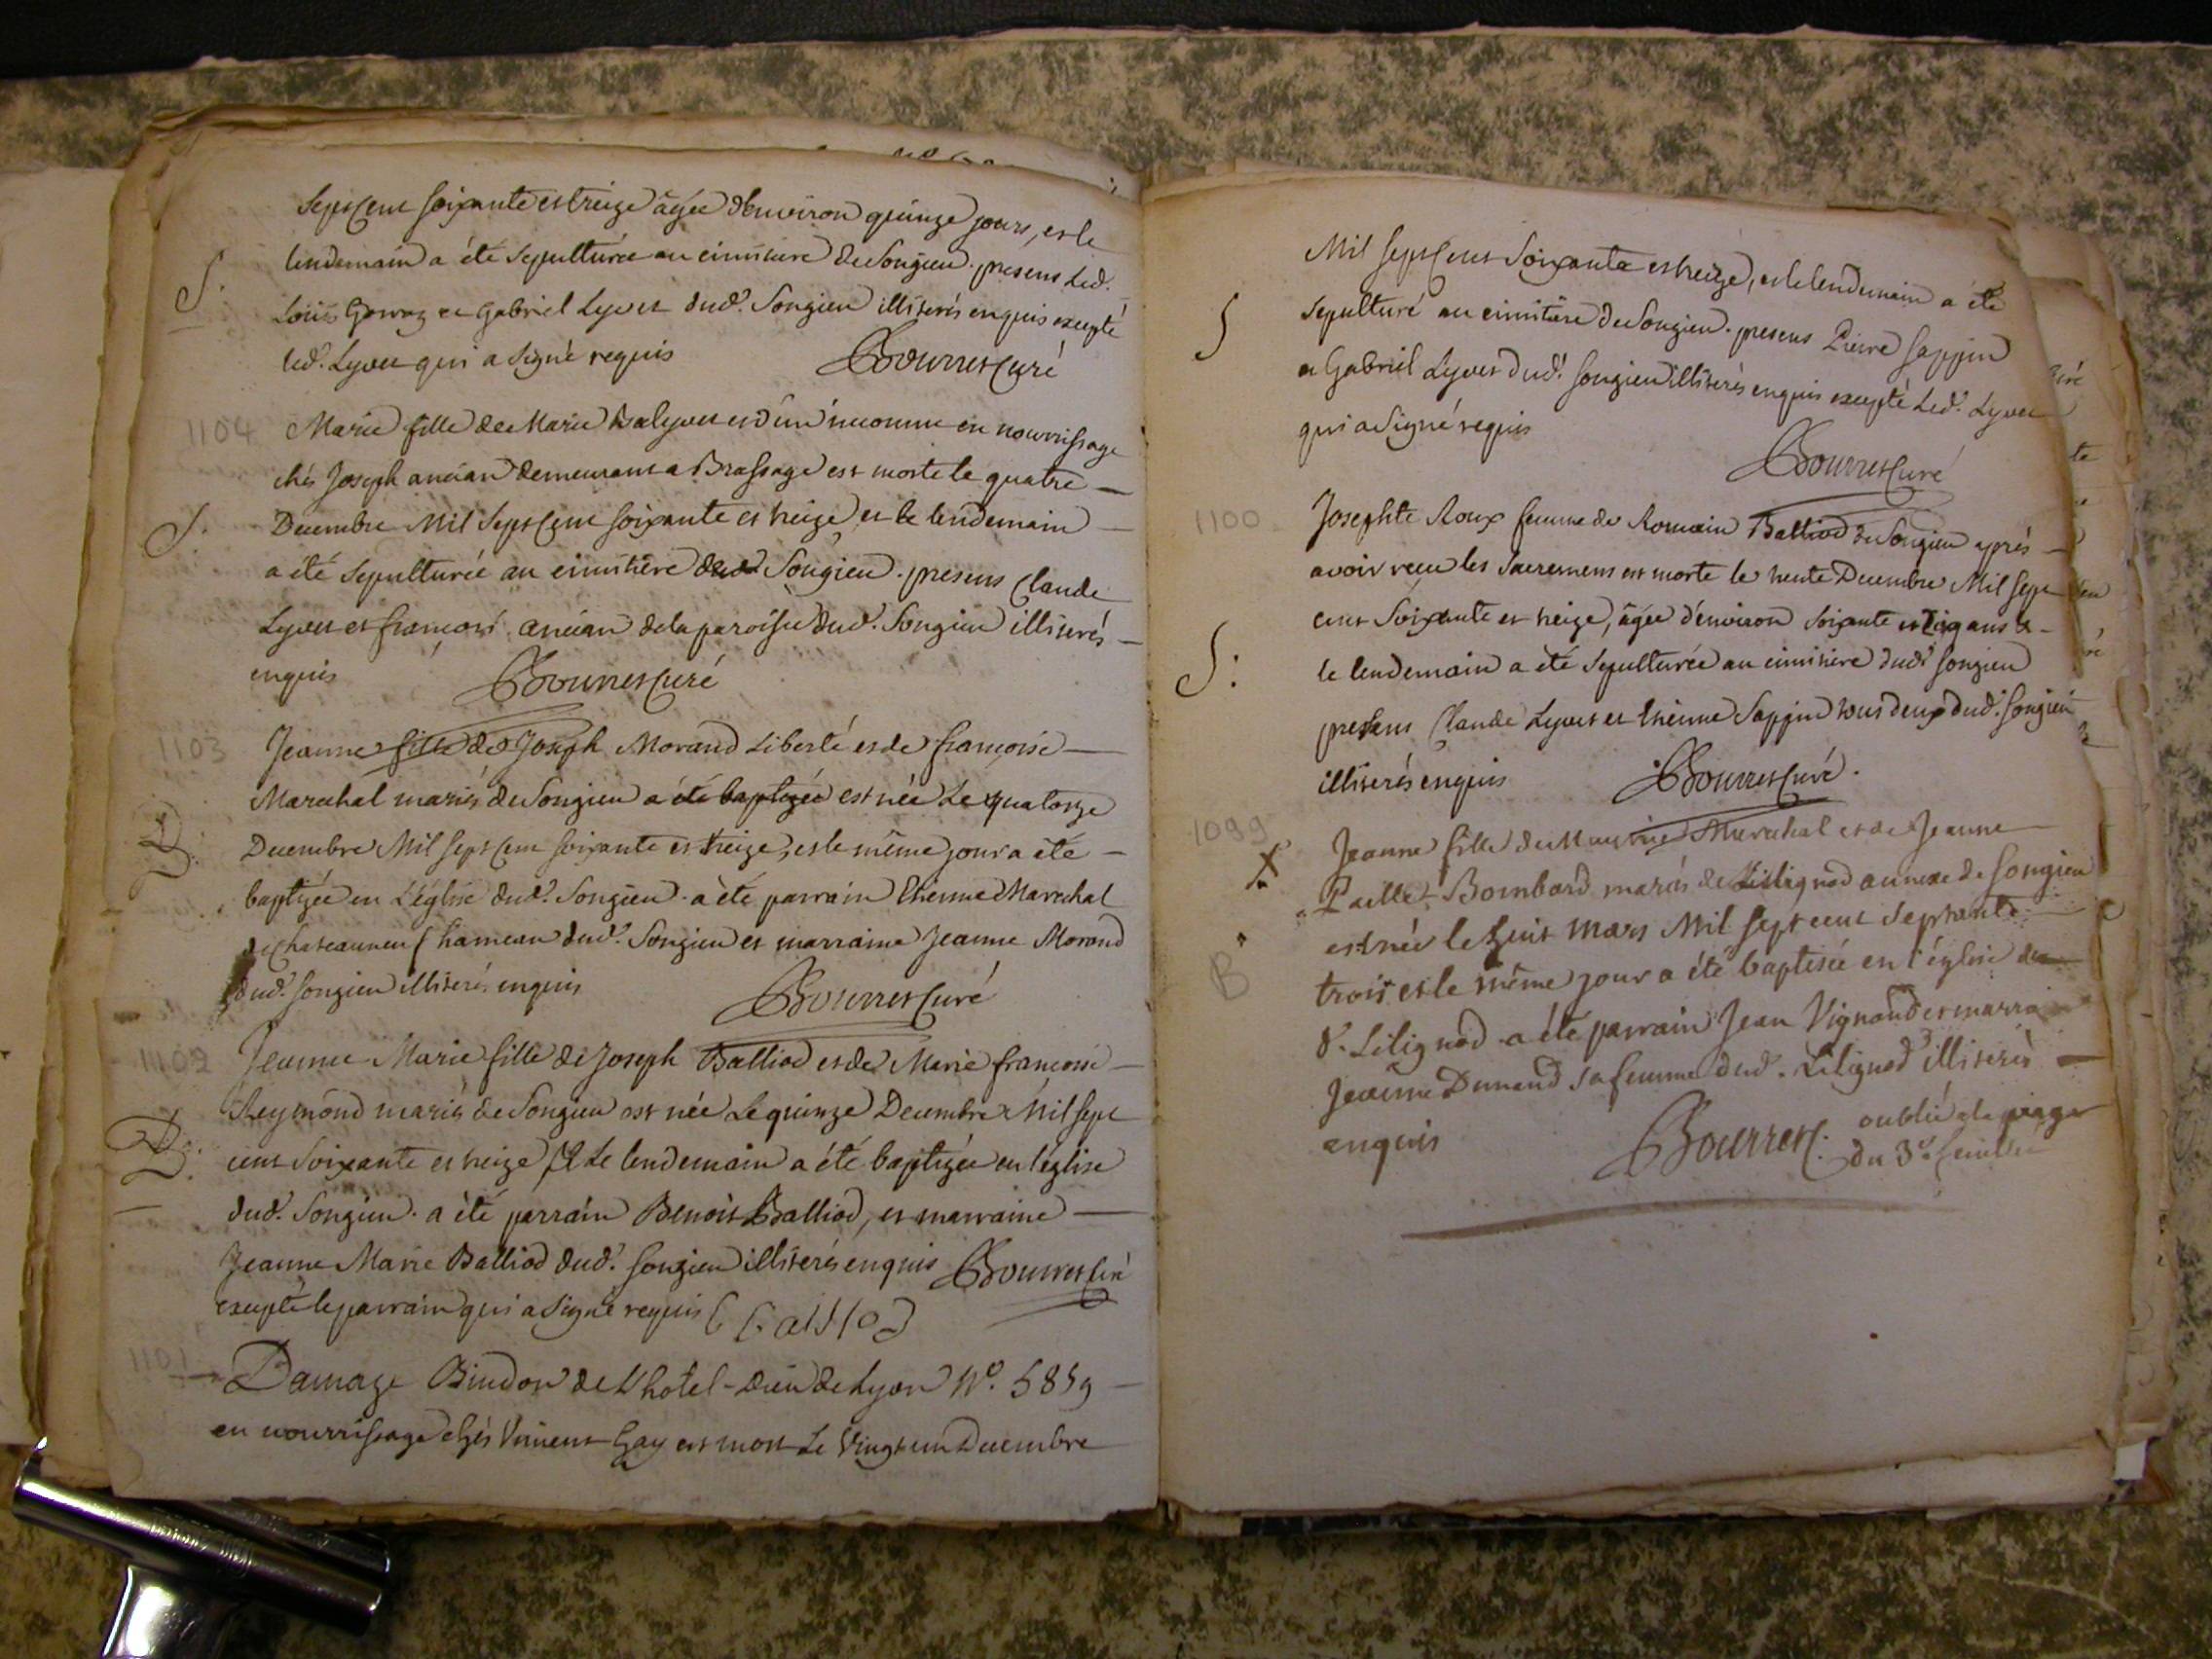 Septcent soixante et treize âgée d'environ quinze jours, et le
lendemain a été sepulturée au cimitiere de Songieu. presens led.
S.
Louis Gowaz et Gabriel Lyvet dud. Songieu illiterés enquis excepté
led. Lyvet qui a signé requis Bourret Curé
1104
Marie fille de Marie Balyvet et d'un inconnu en nourrissage
chés Joseph ancian demeurant a Brassage est morte le quatre
S.
Decembre Mil Septcent soixante et treize, et le lendemain
a été sepulturée au cimitiere dud. Songieu. presens Claude
Lyvet et françois ancian de la paroisse dud. Songieu illiterés
enquis Bourret Curé
1103
Jeanne fille de Joseph Morand Liberté et de françoise
Marechal mariés de Songieu a été baptizée est née Le quatorze
B.
Decembre Mil septcent soixante et treize, et le même jour a été
baptizée en L'église dud. Songieu. a été parrain Etienne Marechal
de Chateauneuf hameau dud. Songieu et marraine Jeanne Morand
dud. songieu illiterés enquis Bourret Curé
1102
Jeanne Marie fille de Joseph Balliod et de Marie françoise
Reymond mariés de Songieu est née Le quinze Decembre Mil sept
B.
cent soixante et treize et Le lendemain a été baptizée en l'église
dud. Songieu. a été parrain Benoit Balliod, et marraine
Jeanne Marie Balliod dud. songieu illiterés enquis Bourret Curé
excepté le parrain qui a signé requis B Balliod
1101
Damaze Bindon de L'hotel-Dieu de Lyon N°. 5859
en nourrissage chés Vincent Gay est mort Le Vingt un Decembre
Mil septcent Soixante et treize, et le lendemain a été
S
sepulturé au cimitière de Songieu. presens Pierre Sappin
et Gabriel Lyvet dud. songieu illiterés enquis excepté Led. Lyvet
qui a signé requis
Bourret Curé
1100
Josephte Roux femme de Romain Balliod de Songieu après
avoir reçu les sacremens est morte le trente Decembre Mil sept
cent Soixante et treize, âgée d'environ soixante et dix ans et
S:
le lendemain a été sepulturée au cimitière dud. songieu
presens Claude Lyvet et Etienne Sappin tous deux dud. songieu
illiterés enquis Bourret Curé.
1099
X
Jeanne fille de Maurice Marechal et de Jeanne
Paillet Bombard mariés de Lilignod annexe de songieu
est née le huit mars Mil sept cent septante
B
trois et le même jour a été baptisée en l'église du
d. Lilignod a été parrain Jean Vignand et marraine
Jeanne Dunand sa femme dud. Lilignod illiterés
enquis Bourret C. oublié a la page
du 3e. feuillet